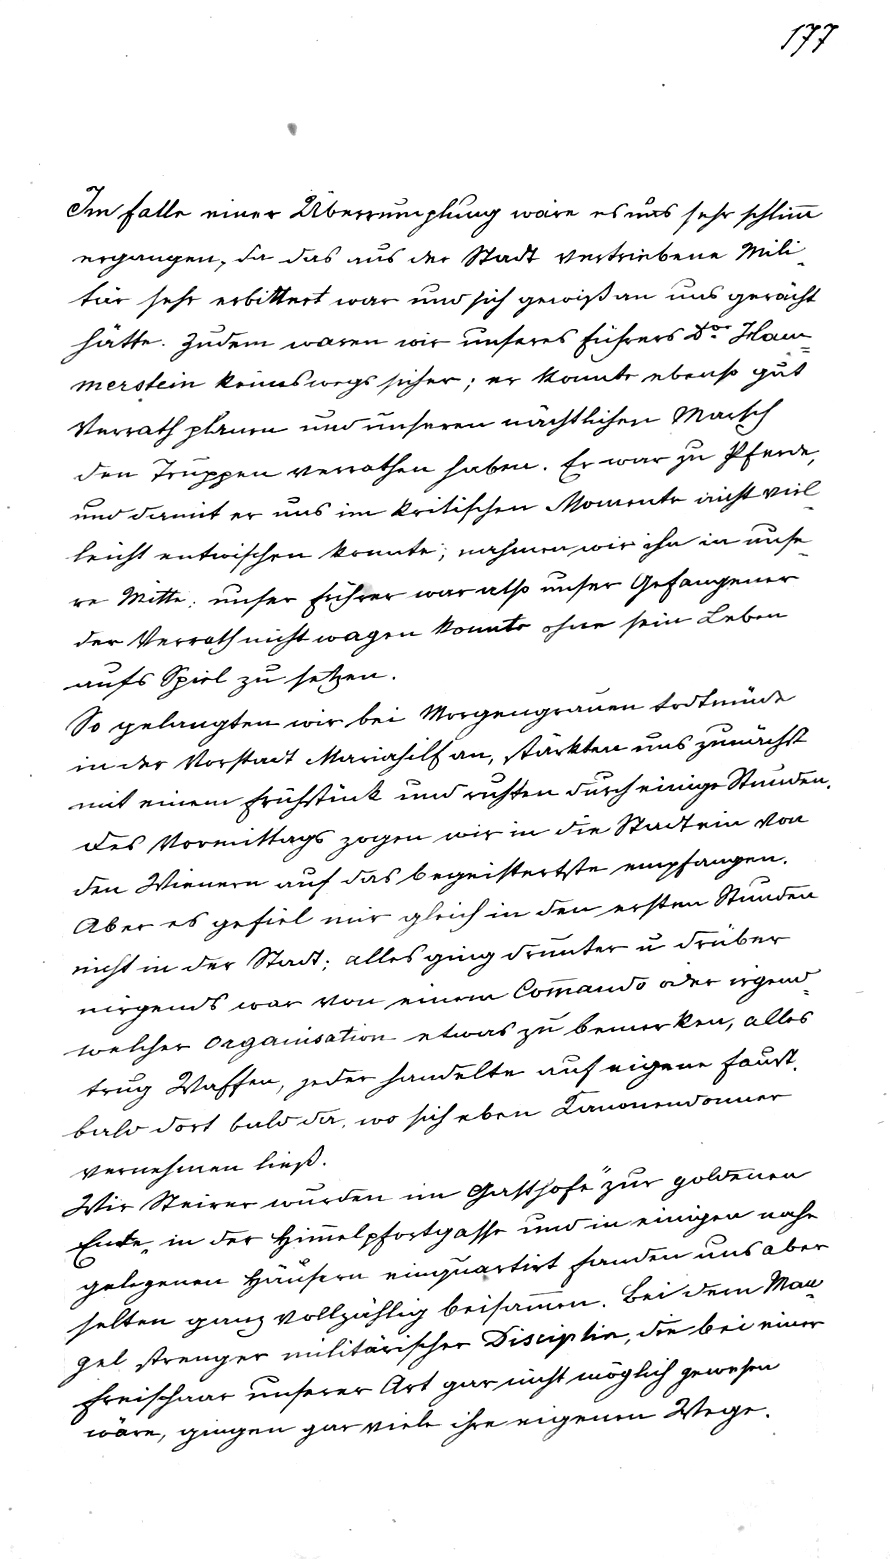 177
Im Falle einer Überrumplung wäre es uns sehr schlim̅
ergangen, da das aus der Stadt vertriebene Mili-
tär sehr erbittert war und sich gewiß an uns gerächt
hätte. Zudem waren wir unseres Führers Dor Ham=
merstein keineswegs sicher; er konnte ebenso gut
Verrath planen und unseren nächtlichen Marsch
den Truppen verrathen haben. Er war zu Pferde,
und damit er uns im kritischen Momente nicht viel-
leicht entwischen konnte; nahmen wir ihn in unse-
re Mitte; unser Führer war also unser Gefangener
der Verrath nicht wagen konnte ohne sein Leben
aufs Spiel zu setzen.
So gelangten wir bei Morgengrauen todtmüde
in der Vorstadt Mariahilf an, stärkten uns zunächst
mit einem Frühstück und ruhten durch einige Stunden.
Des Vormittags zogen wir in die Stadt ein von
den Wienern auf das begeistertste empfangen.
Aber es gefiel mir gleich in den ersten Stunden
nicht in der Stadt; alles ging drunter u drüber
nirgends war von einem Com̅ando oder irgend-
welcher Organisation etwas zu bemerken, alles
trug Waffen, jeder handelte auf eigene Faust,
bald dort bald da, wo sich eben Kanonendonner
vernehmen ließ.
Wir Steirer wurden im Gasthofe "zur goldenen
Ente" in der Him̅elpfortgasse und in einigen nahe
gelegenen Häusern einquartirt fanden uns aber
selten ganz vollzählig beisam̅en. Bei dem Man=
gel strenger militärischer Disciplin, die bei einer
Freischaar unserer Art gar nicht möglich gewesen
wäre, gingen gar viele ihre eigenen Wege.